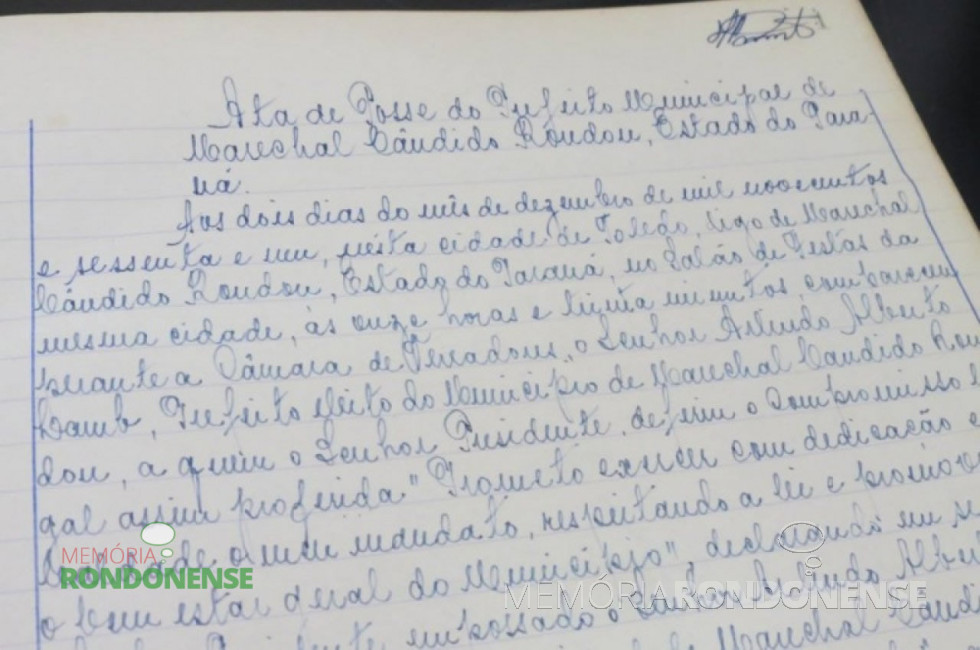 Ata de Posse do Prefeito Municipal de
Marechal Cândido Rondon, Estado do Para-
ná.
Aos dois dias do mês de dezembro de mil novecentos
e sessenta e um, nesta cidade de Toledo, digo de Marechal
Cândido Rondon, Estado do Paraná, no Salão de Festas da
mesma cidade, às onze horas e trinta minutos, compareceu
perante a Câmara de Vereadores, o Senhor Arlindo Alberto
Lamb, Prefeito eleito do Município de Marechal Candido Ron
don, a quem o Senhor Presidente, deferiu o compromisso le
gal assim proferida "Prometo exercer com dedicação e
o meu mandato, respeitando a lei e promoven
o bem estar geral do Município", declarando em se
empossado o Senhor Arlindo Albe
Marechal Candi
MEMÓRIA
RONDONENSE
MEMÓRIARONDONENSE